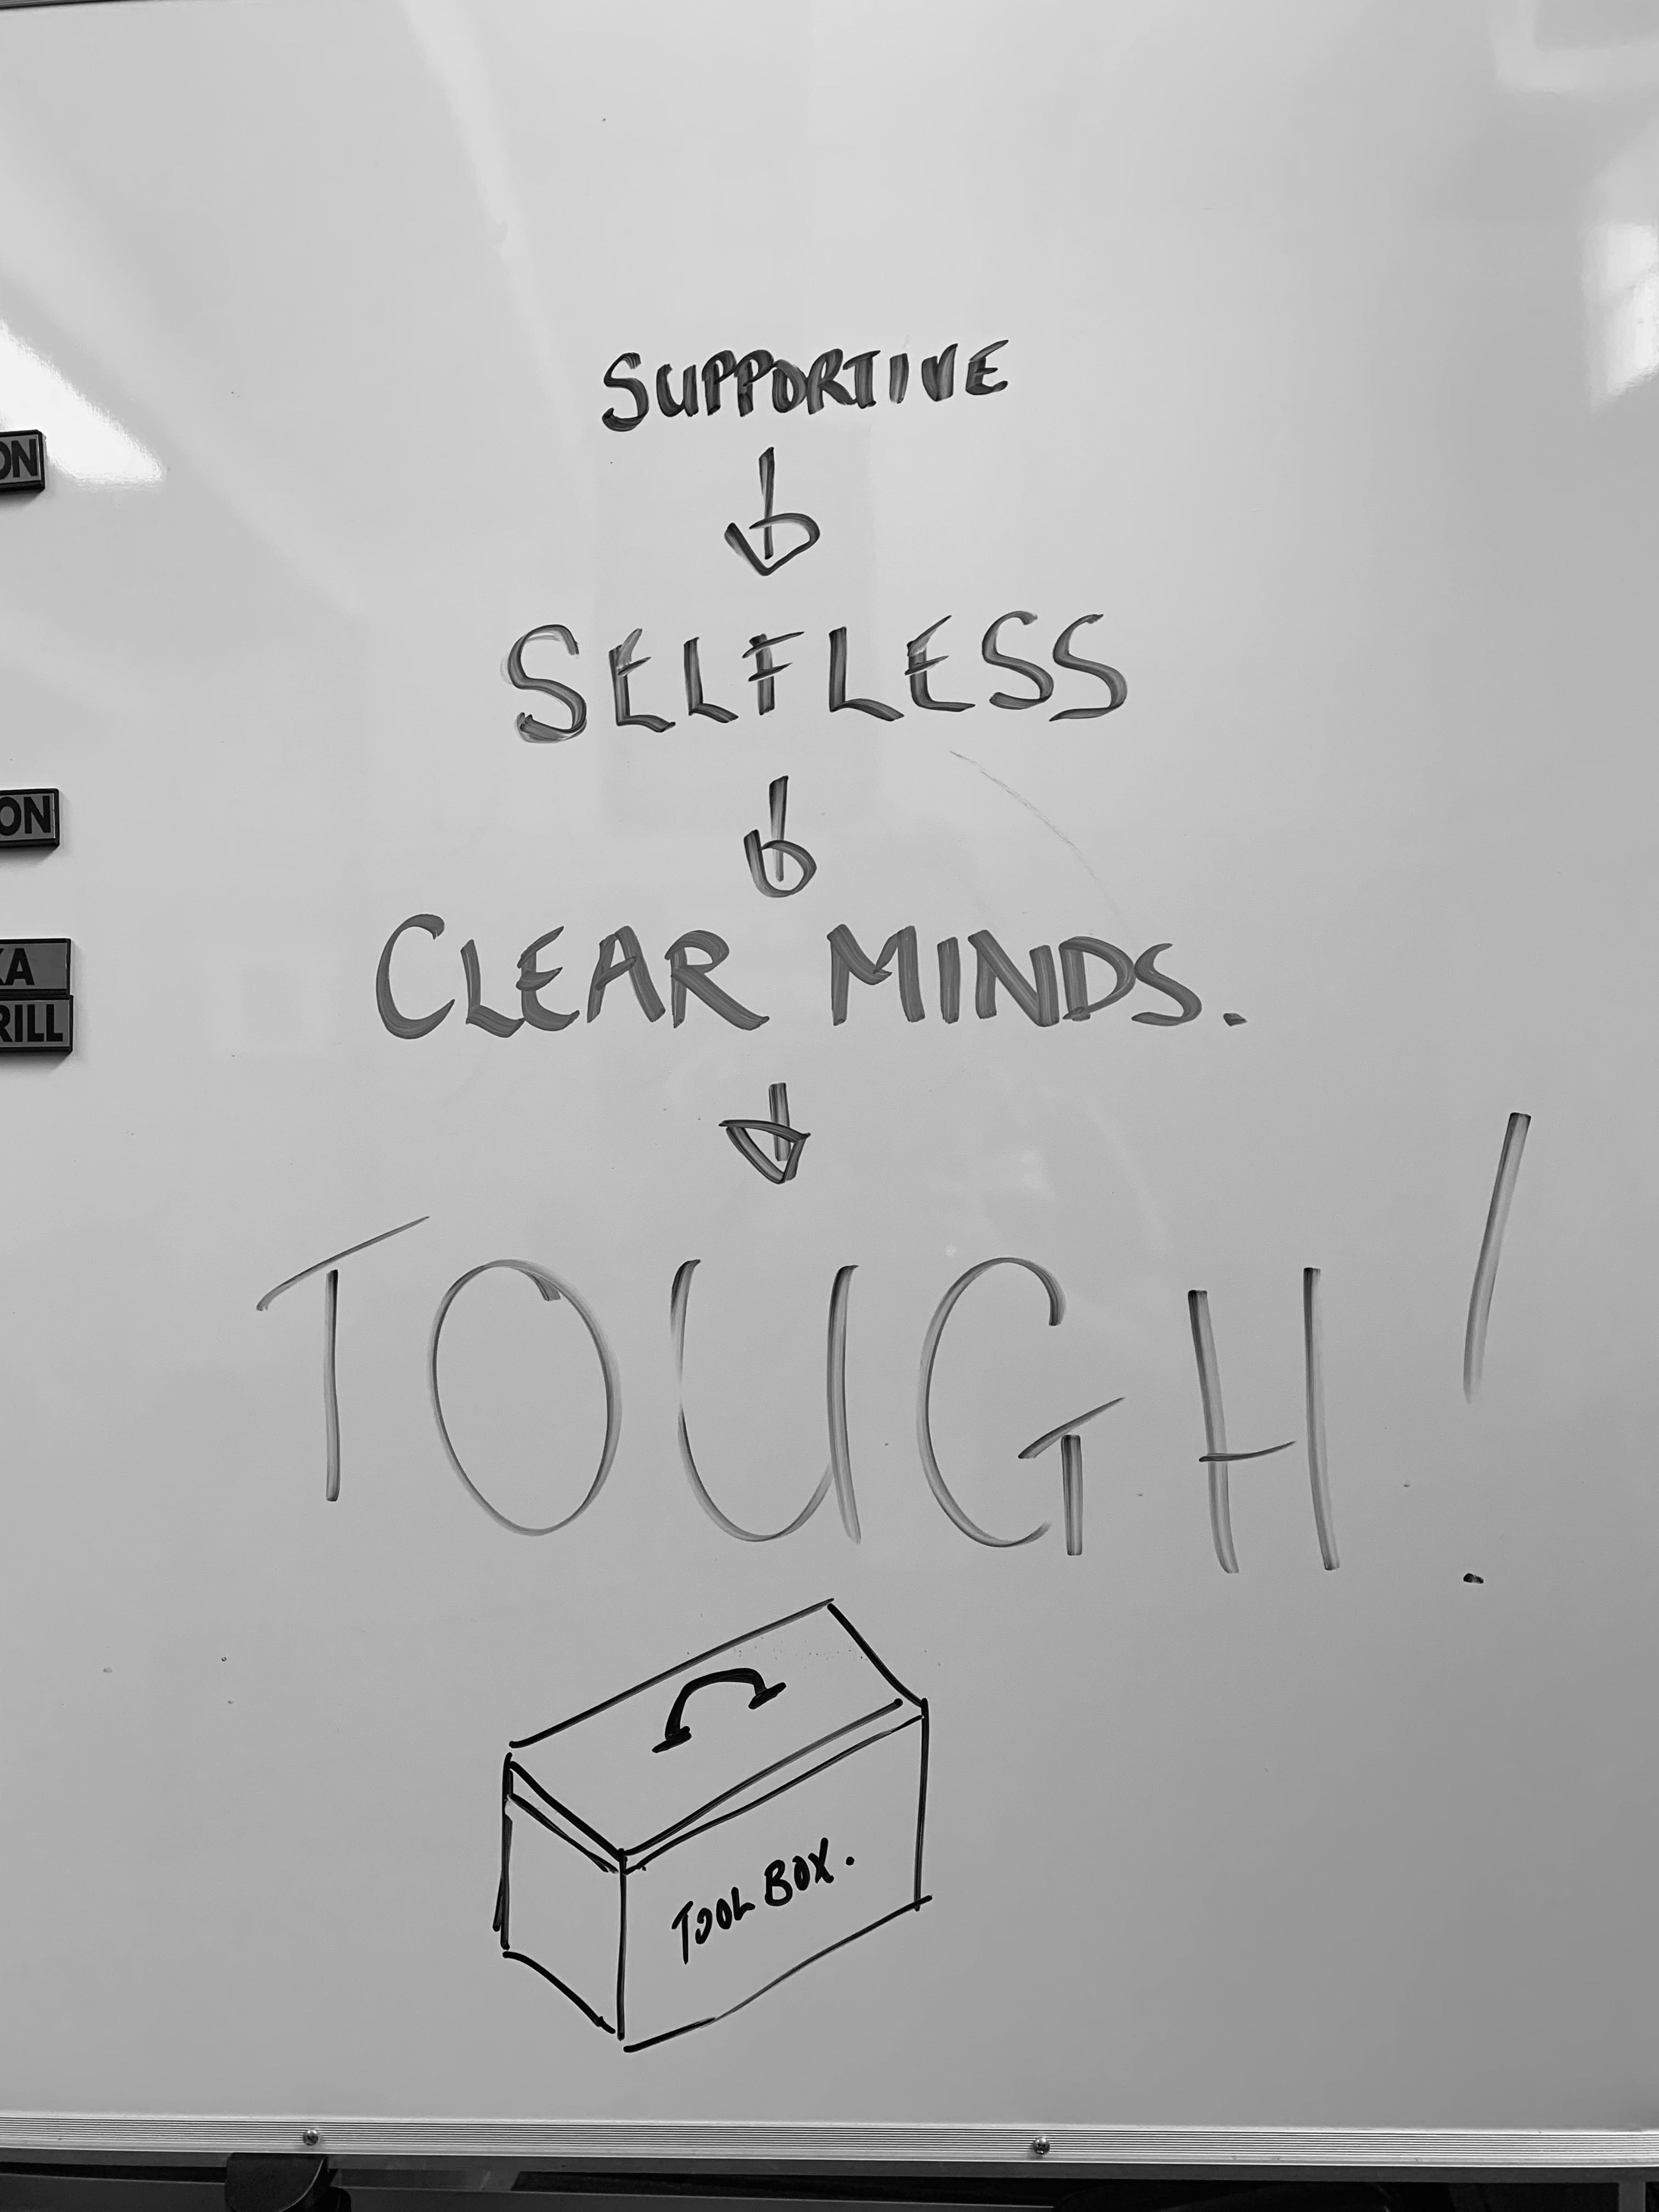 SUPPORTIVE
SELFLESS
CLEAR MINDS.
TOUGH!
TOOL BOX.
ON
ON
KA
RILL